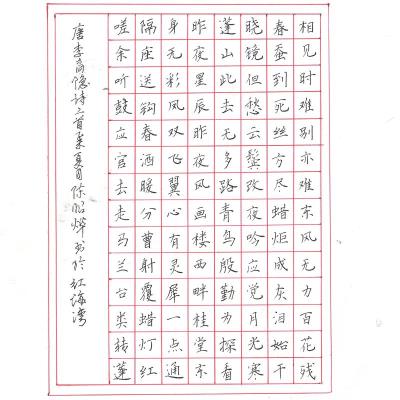 相见时难别亦难东风无力百花残
春蚕到死丝方尽蜡炬成灰泪始干
晓镜但愁云鬓改夜吟应觉月光寒
蓬山此去无多路青鸟殷勤为探看
昨夜星辰昨夜风画楼西畔桂堂东
身无彩凤双飞翼心有灵犀一点通
隔座送钩春酒暖分曹射覆蜡灯红
嗟余听鼓应官去走马兰台类转蓬
唐李商隐诗二首夏月陈昭烨书于红海湾